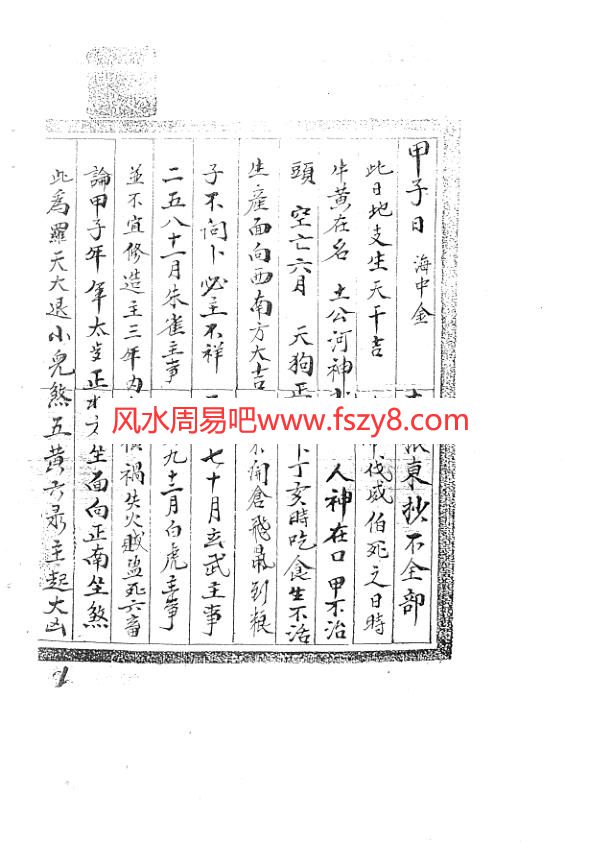 甲子日 海中金 東抄不全部
此日地支生天干吉 伐咸伯死之日時
牛黄在名 土公河神 人神在口 甲不治
頭 空亡六月 天狗正 卜丁亥時吃食生不活
生產面向西南方大吉 不開倉飛 到粮
子不问卜 必主不祥 七十月玄武主事
二五八十一月朱雀主事 九十二月白虎主事
並不宜修造主三年内 祸失火賊盜死六畜
論甲子年 年太岁正 坐面向正南坐煞
此爲羅天大退小児煞五黄六 主起大凶
风水周易吧www.fszy8.com